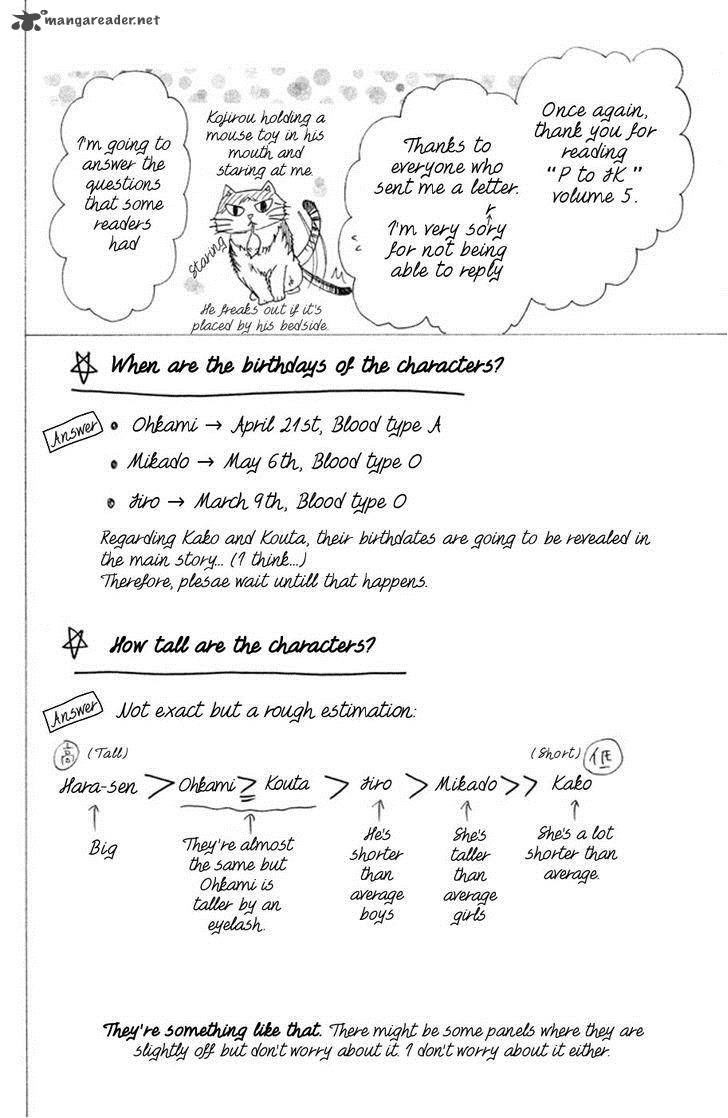 mangareader.net
Once again,
thank you for
reading
"P to JK"
volume 5.
Thanks to
everyone who
sent me a letter.
r
I'm very sory
for not being
able to reply
Kojirou holding a
mouse toy in his
mouth and
staring at me.
Staring
He freaks out if it's
placed by his bedside.
I'm going to
answer the
questions
that some
readers
had
When are the birthdays of the characters?
Answer
• Ohkami → April 21st, Blood type A
• Mikado → May 6th, Blood type O
• Jiro → March 9th, Blood type O
Regarding Kako and Kouta, their birthdates are going to be revealed in
the main story... (I think...)
Therefore, plesae wait untill that happens.
How tall are the characters?
Answer
Not exact but a rough estimation:
高 (Tall)
(Short) 低
Hara-sen > Ohkami ≥ Kouta > Jiro > Mikado >> Kako
Big
They're almost
the same but
Ohkami is
taller by an
eyelash.
He's
shorter
than
average
boys
She's
taller
than
average
girls
She's a lot
shorter than
average.
They're something like that. There might be some panels where they are
slightly off but don't worry about it. I don't worry about it either.